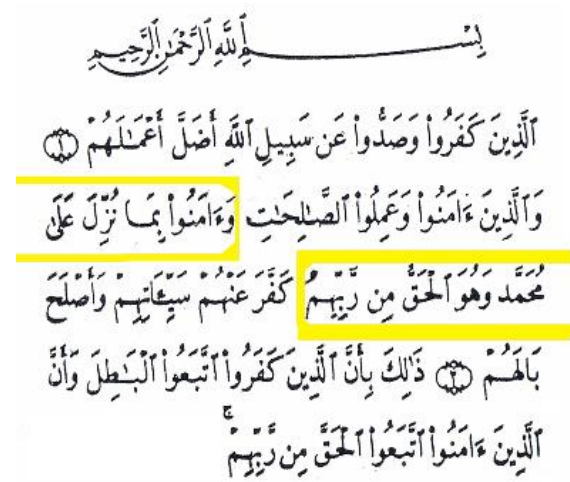 بِسْمِ ٱللَّهِ ٱلرَّحْمَٰنِ ٱلرَّحِيمِ
ٱلَّذِينَ كَفَرُوا۟ وَصَدُّوا۟ عَن سَبِيلِ ٱللَّهِ أَضَلَّ أَعْمَـٰلَهُمْ ۝١
وَٱلَّذِينَ ءَامَنُوا۟ وَعَمِلُوا۟ ٱلصَّـٰلِحَـٰتِ وَءَامَنُوا۟ بِمَا نُزِّلَ عَلَىٰ
مُحَمَّد وَهُوَ ٱلْحَقُّ مِن رَّبِّهِمْ كَفَّرَ عَنْهُمْ سَيِّـَٔاتِهِمْ وَأَصْلَحَ
بَالَهُمْ ۝٢ ذَٰلِكَ بِأَنَّ ٱلَّذِينَ كَفَرُوا۟ ٱتَّبَعُوا۟ ٱلْبَـٰطِلَ وَأَنَّ
ٱلَّذِينَ ءَامَنُوا۟ ٱتَّبَعُوا۟ ٱلْحَقَّ مِن رَّبِّهِمْ ۚ